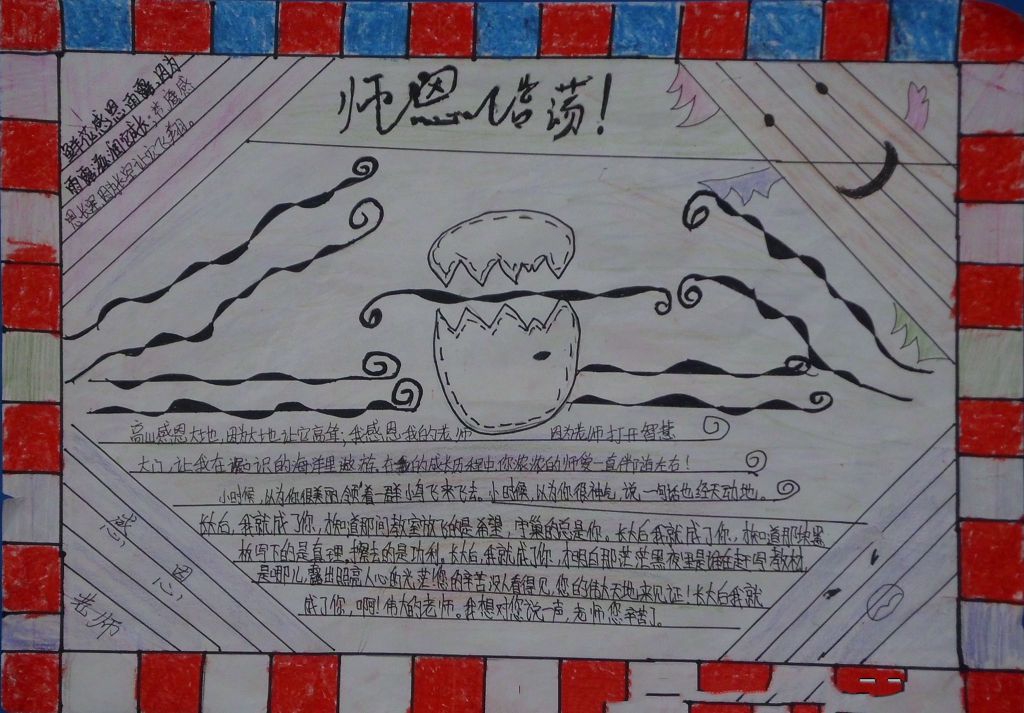 师恩浩荡!
鲜花感恩雨露,因为
雨露滋润它成长;苍鹰感
恩长空,因为长空让它飞翔。
高山感恩大地,因为大地让它高耸;我感恩我的老师 因为老师打开智慧
大门,让我在知识的海洋里遨游,在我的成长历程中,你浓浓的师爱一直伴随左右!
小时候,以为你很美丽,领着一群小鸟飞来飞去。小时候,以为你很神气,说一句话也经天动地。
长大后,我就成了你,才知道那间教室放飞的是希望,守巢的总是你。长大后我就成了你,才知道那块黑
板写下的是真理,擦去的是功利。长大后,我就成了你,才明白那茫茫黑夜里是谁在赶写教材,
是哪儿露出照亮人心的光茫!您的辛苦没人看得见,您的伟大天地来见证!长大后我就
成了你,啊!伟大的老师。我想对您说一声,老师您辛苦了。
感恩
老师